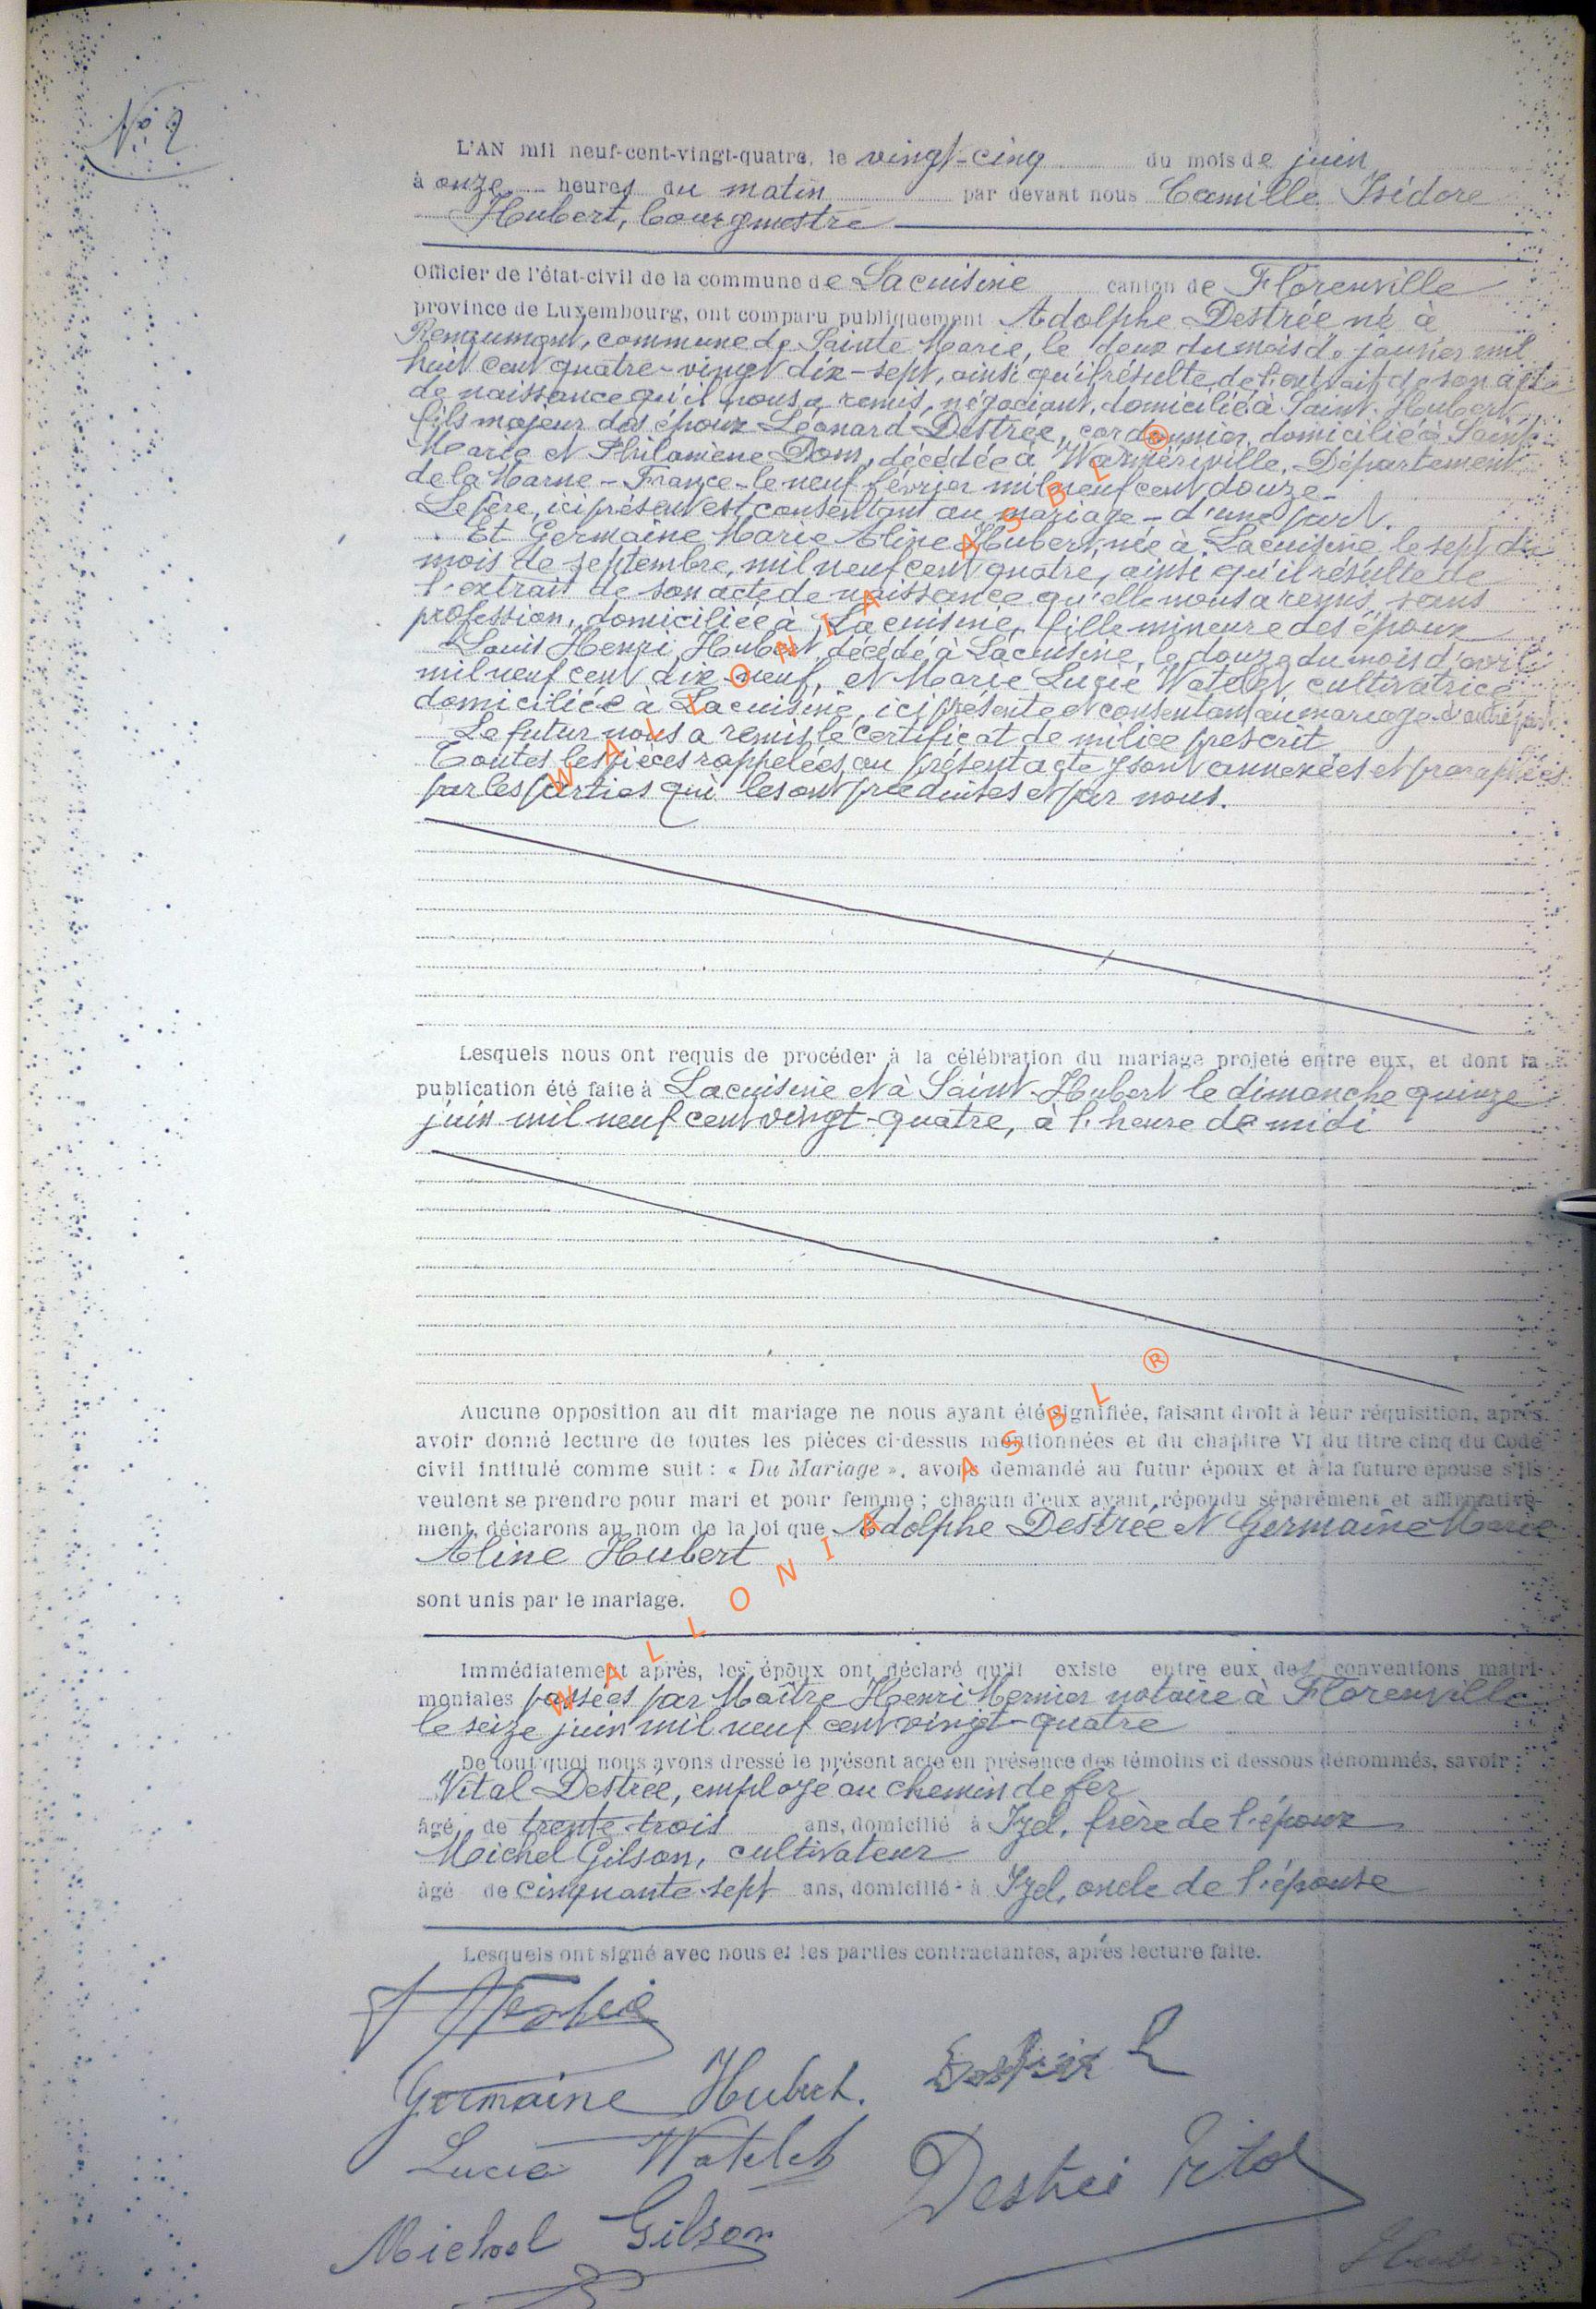 No 2
L'AN mil neuf-cent-vingt-quatre, le vingt-cinq du mois de juin
à onze heures du matin par devant nous Camille Isidore
Hubert, bourgmestre
Officier de l'état-civil de la commune de Lacuisine canton de Florenville
province de Luxembourg, ont comparu publiquement Adolphe Destrée né à
commune de Sainte Marie, le deux du mois de janvier mil
huit cent quatre-vingt dix-sept, ainsi qu'il résulte de l'extrait de son acte
de naissance qu'il nous a remis, négociant, domicilié à Saint-Hubert
fils majeur des époux Léonard Destrée, cordonnier, domicilié à Sainte
Marie et Philomène Dom, décédée à Warmériville, Département
de la Marne - France - le neuf février mil neuf cent douze -
Le père, ici présent est consentant au mariage - d'une part.
Et Germaine Marie Aline Hubert, née à Lacuisine, le sept du
mois de septembre, mil neuf cent quatre, ainsi qu'il résulte de
l'extrait de son acte de naissance qu'elle nous a remis, sans
profession, domiciliée à Lacuisine, fille mineure des époux
Louis Henri Hubert, décédé à Lacuisine, le douze du mois d'avril
mil neuf cent dix-neuf, et Marie Lucie Watelet, cultivatrice
domiciliée à Lacuisine, ici présente et consentant au mariage - d'autre part.
Le futur nous a remis le certificat de milice prescrit
Toutes les pièces rappelées au présent acte y sont annexées et paraphées
par les parties qui les ont produites et par nous.
Lesquels nous ont requis de procéder à la célébration du mariage projeté entre eux, et dont la
publication été faite à Lacuisine et à Saint-Hubert le dimanche quinze
juin mil neuf cent vingt-quatre, à l'heure de midi
Aucune opposition au dit mariage ne nous ayant été signifiée, faisant droit à leur réquisition, après
avoir donné lecture de toutes les pièces ci-dessus mentionnées et du chapitre VI du titre cinq du Code
civil intitulé comme suit : « Du Mariage », avons demandé au futur époux et à la future épouse s'ils
veulent se prendre pour mari et pour femme ; chacun d'eux ayant répondu séparément et affirmative-
ment, déclarons au nom de la loi que Adolphe Destrée et Germaine Marie
Aline Hubert
sont unis par le mariage.
Immédiatement après, les époux ont déclaré qu'il existe entre eux des conventions matri-
moniales passées par Maître Henri Mernier notaire à Florenville
le seize juin mil neuf cent vingt-quatre
De tout quoi nous avons dressé le présent acte en présence des témoins ci dessous dénommés, savoir :
Vital Destrée, employé au chemin de fer
âgé de trente-trois ans, domicilié à Izel, frère de l'époux
Michel Gilson, cultivateur
âgé de cinquante-sept ans, domicilié à Izel, oncle de l'épouse
Lesquels ont signé avec nous et les parties contractantes, après lecture faite.
Germaine Hubert.
Lucie Watelet
Destrée Vital
Michel Gilson
Hubert
WALLONIA ASBL ®
WALLONIA ASBL ®